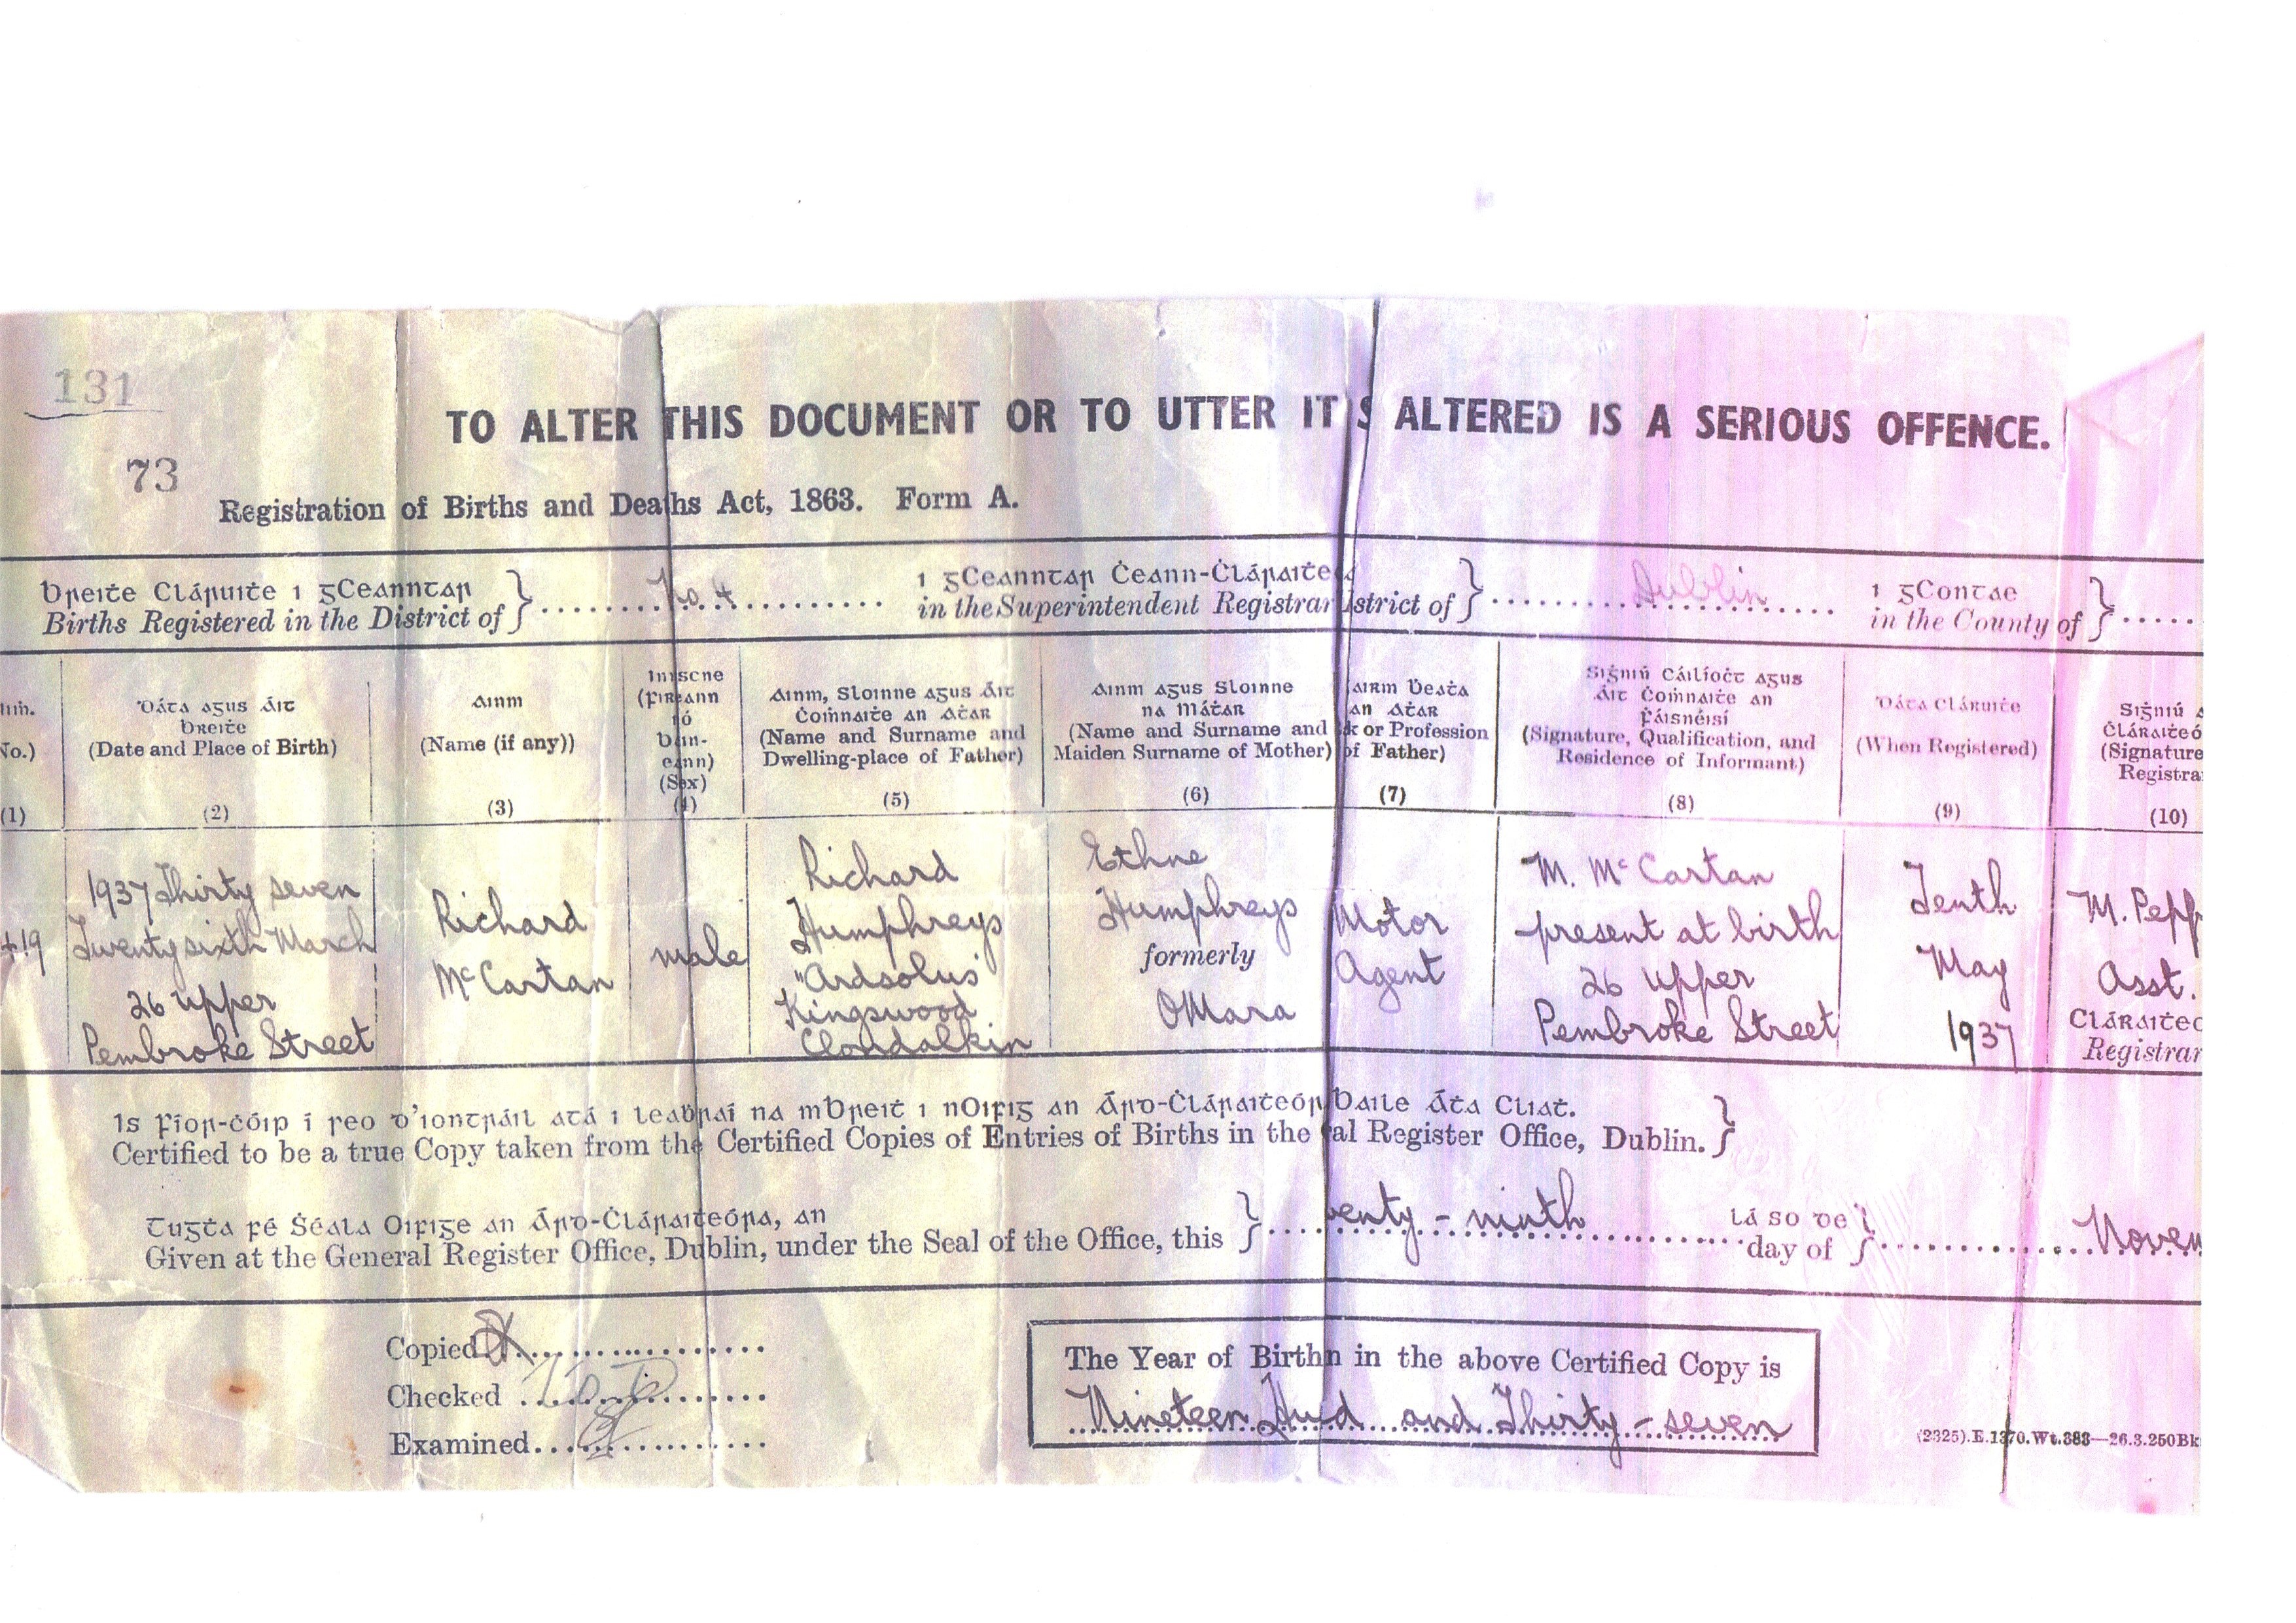 131
TO ALTER THIS DOCUMENT OR TO UTTER IT S ALTERED IS A SERIOUS OFFENCE.
73
Registration of Births and Deaths Act, 1863. Form A.
Breiṫe Cláruiṫe i gCeanntar
Births Registered in the District of
No 4
i gCeanntar Ċeann-Ċláraiṫe
in the Superintendent Registrar istrict of
Dublin
i gContae
in the County of
Uiṁ.
No.)
(1)
Dáta agus Áit
Breiṫe
(Date and Place of Birth)
(2)
Ainm
(Name (if any))
(3)
Inscne
(Fireann
nó
Bain-
eann)
(Sex)
(4)
Ainm, Sloinne agus Áit
Ċoṁnaiṫe an Aṫar
(Name and Surname and
Dwelling-place of Father)
(5)
Ainm agus Sloinne
na Máṫar
(Name and Surname and
Maiden Surname of Mother)
(6)
airm Beaṫa
an Aṫar
k or Profession
of Father)
(7)
Siġniú Cáilíoċt agus
Áit Ċoṁnaiṫe an
Ḟáisnéisí
(Signature, Qualification, and
Residence of Informant)
(8)
Dáta Cláruiṫe
(When Registered)
(9)
Siġniú a
Ċláraiṫeó
(Signature
Registra
(10)
419
1937 Thirty seven
Twenty sixth March
26 Upper
Pembroke Street
Richard
McCartan
male
Richard
Humphreys
"Ardsolus"
Kingswood
Clondalkin
Ethne
Humphreys
formerly
OMara
Motor
Agent
M. McCartan
present at birth
26 Upper
Pembroke Street
Tenth
May
1937
M. Pepp
Asst.
Cláraiṫeo
Registrar
Is fíor-ċóip í seo d'iontráil atá i leaḃraí na mBreiṫ i nOifig an Árd-Ċláraiṫeór Baile Áṫa Cliaṫ.
Certified to be a true Copy taken from the Certified Copies of Entries of Births in the al Register Office, Dublin.
Tugṫa fé Ṡéala Oifige an Árd-Ċláraiṫeóra, an
Given at the General Register Office, Dublin, under the Seal of the Office, this
wenty-ninth
lá so de
day of
Novem
Copied
Checked
Examined
The Year of Birth in the above Certified Copy is
Nineteen Hud and Thirty-seven
(2325).E.1370.Wt.383—26.3.250Bk